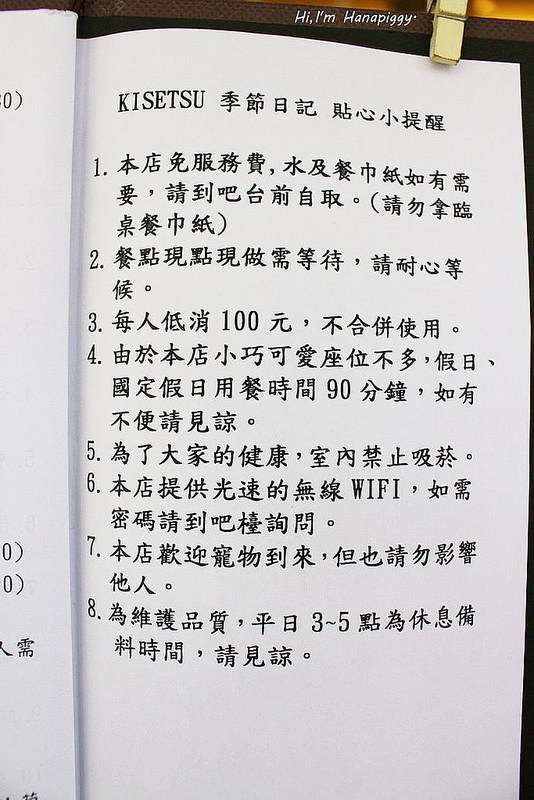 Hi,I'm Hanapiggy.
KISETSU 季節日記 貼心小提醒
1. 本店免服務費,水及餐巾紙如有需
要，請到吧台前自取。(請勿拿臨
桌餐巾紙)
2. 餐點現點現做需等待，請耐心等
候。
3. 每人低消 100 元，不合併使用。
4. 由於本店小巧可愛座位不多，假日、
國定假日用餐時間 90 分鐘，如有
不便請見諒。
5. 為了大家的健康，室內禁止吸菸。
6. 本店提供光速的無線 WIFI，如需
密碼請到吧檯詢問。
7. 本店歡迎寵物到來，但也請勿影響
他人。
8. 為維護品質，平日 3~5 點為休息備
料時間，請見諒。
0)
0)
0)
人需